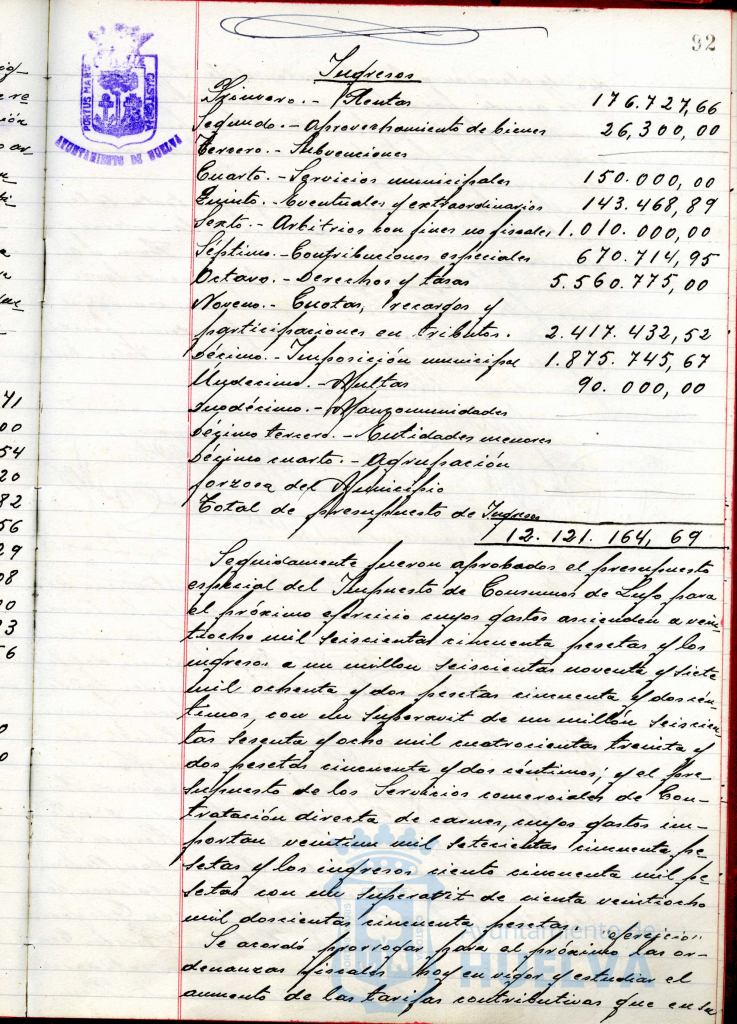 92
PORTUS MARIS ET TERRAE CUSTODIA
AYUNTAMIENTO DE HUELVA
Ingresos
Primero.- Rentas 176.727,66
Segundo.- Aprovechamiento de bienes 26,300,00
Tercero.- Subvenciones
Cuarto.- Servicios municipales 150.000,00
Quinto.- Eventuales y extraordinarios 143.468,89
Sexto.- Arbitrios con fines no fiscales 1.010.000,00
Séptimo.- Contribuciones especiales 670.714,95
Octavo.- Derechos y tasas 5.560.775,00
Noveno.- Cuotas, recargos y
participaciones en tributos. 2.417.432,52
Décimo.- Imposición municipal 1.875.745,67
Undécimo.- Multas 90.000,00
Duodécimo.- Mancomunidades
Décimo tercero.- Entidades menores
Décimo cuarto.- Agrupación
forzosa del Municipio
Total de presupuesto de Ingresos
12.121.164,69
Seguidamente fueron aprobados el presupuesto
especial del Impuesto de Consumos de Lujo para
el próximo ejercicio cuyos gastos ascienden a vein-
tiocho mil seiscientas cincuenta pesetas y los
ingresos a un millon seiscientas noventa y siete
mil ochenta y dos pesetas cincuenta y dos cén-
timos, con un superavit de un millón seiscien-
tas sesenta y ocho mil cuatrocientas treinta y
dos pesetas cincuenta y dos céntimos; y el pre-
supuesto de los Servicios comerciales de Con-
tratación directa de carnes, cuyos gastos im-
portan veintiun mil setecientas cincuenta pe-
setas y los ingresos ciento cincuenta mil pe-
setas con un superavit de cienta veintiocho
mil doscientas cincuenta pesetas.
ejercicio
Se acordó prorrogar para el próximo las or-
denanzas fiscales hoy en vigor y estudiar el
aumento de las tarifas contributivas que en su
Ayuntamiento de
HUELVA
41
00
54
20
82
56
29
08
00
03
56
0
0